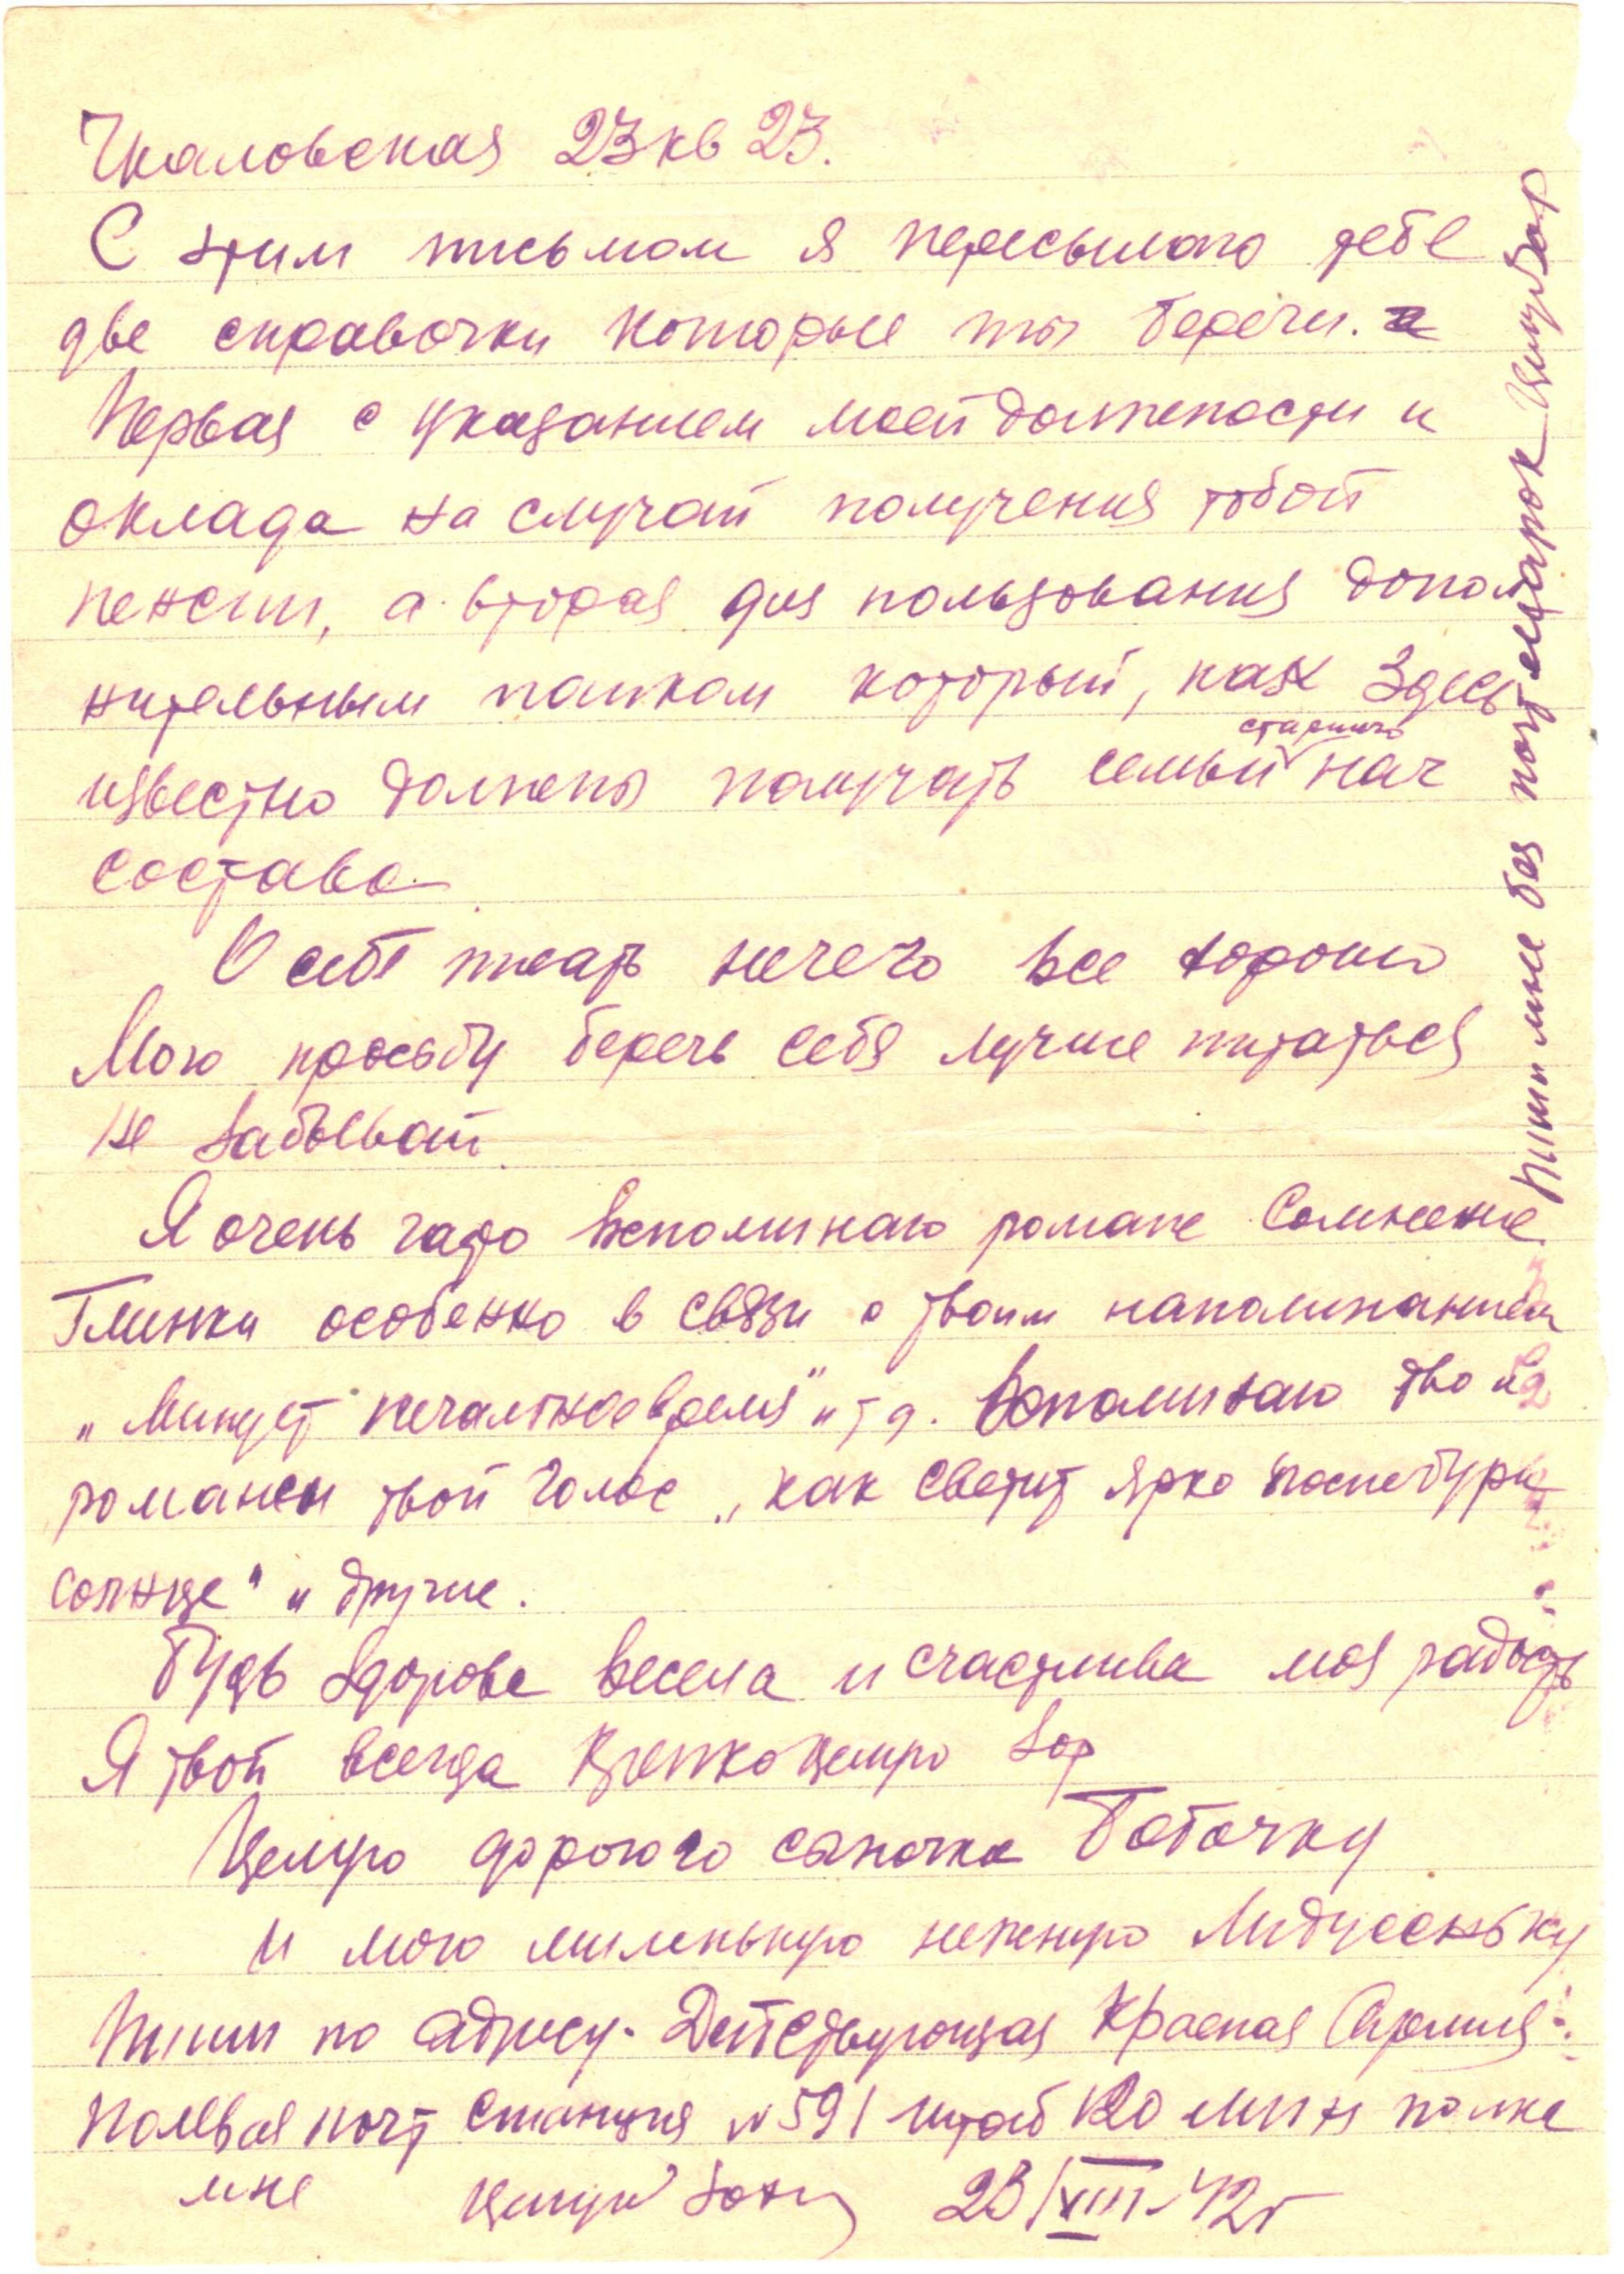 Чкаловская 23 кв 23.
С этим письмом я пересылаю тебе
две справочки которые ты береги.
Первая с указанием моей должности и
оклада на случай получения тобой
пенсии, а вторая для пользования допол
нительным пайком который, как здесь
известно должны получать семьи старшего нач
состава
О себе писать нечего все хорошо
Мою просьбу беречь себя лучше питаться
не забывай
Я очень часто вспоминаю романс Сомнение
Глинки особенно в связи с твоим напоминанием
„Минует печальное время" и т д. Вспоминаю твои
романсы твой голос „как светит ярко после бури
солнце" и другие.
Будь здорова весела и счастлива моя радость
Я твой всегда крепко целую Зор
Целую дорогого сыночка Бобочку
и мою миленькую нежную Лидусеньку
Пиши по адресу. Действующая Красная Армия.
Полевая почт станция № 591 штаб 120 мин полка
мне 23/VIII-42г
Пиши мне без почт марок Целую Зор